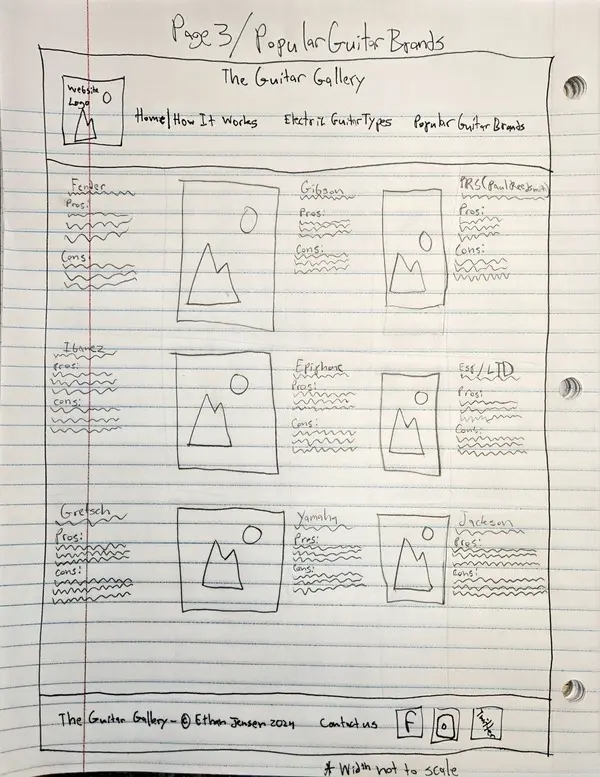 Page 3/Popular Guitar Brands
The Guitar Gallery
Website
Logo
Home/How It Works Electric Guitar Types Popular Guitar Brands
Fender
Pros:
Cons:
Gibson
Pros:
Cons:
PRS(Paul Reed Smith)
Pros:
Cons:
Ibanez
Pros:
Cons:
Epiphone
Pros:
Cons:
ESP/LTD
Pros:
Cons:
Gretsch
Pros:
Cons:
Yamaha
Pros:
Cons:
Jackson
Pros:
Cons:
The Guitar Gallery - © Ethan Jensen 2024 Contact us f Twitter
* Width not to scale